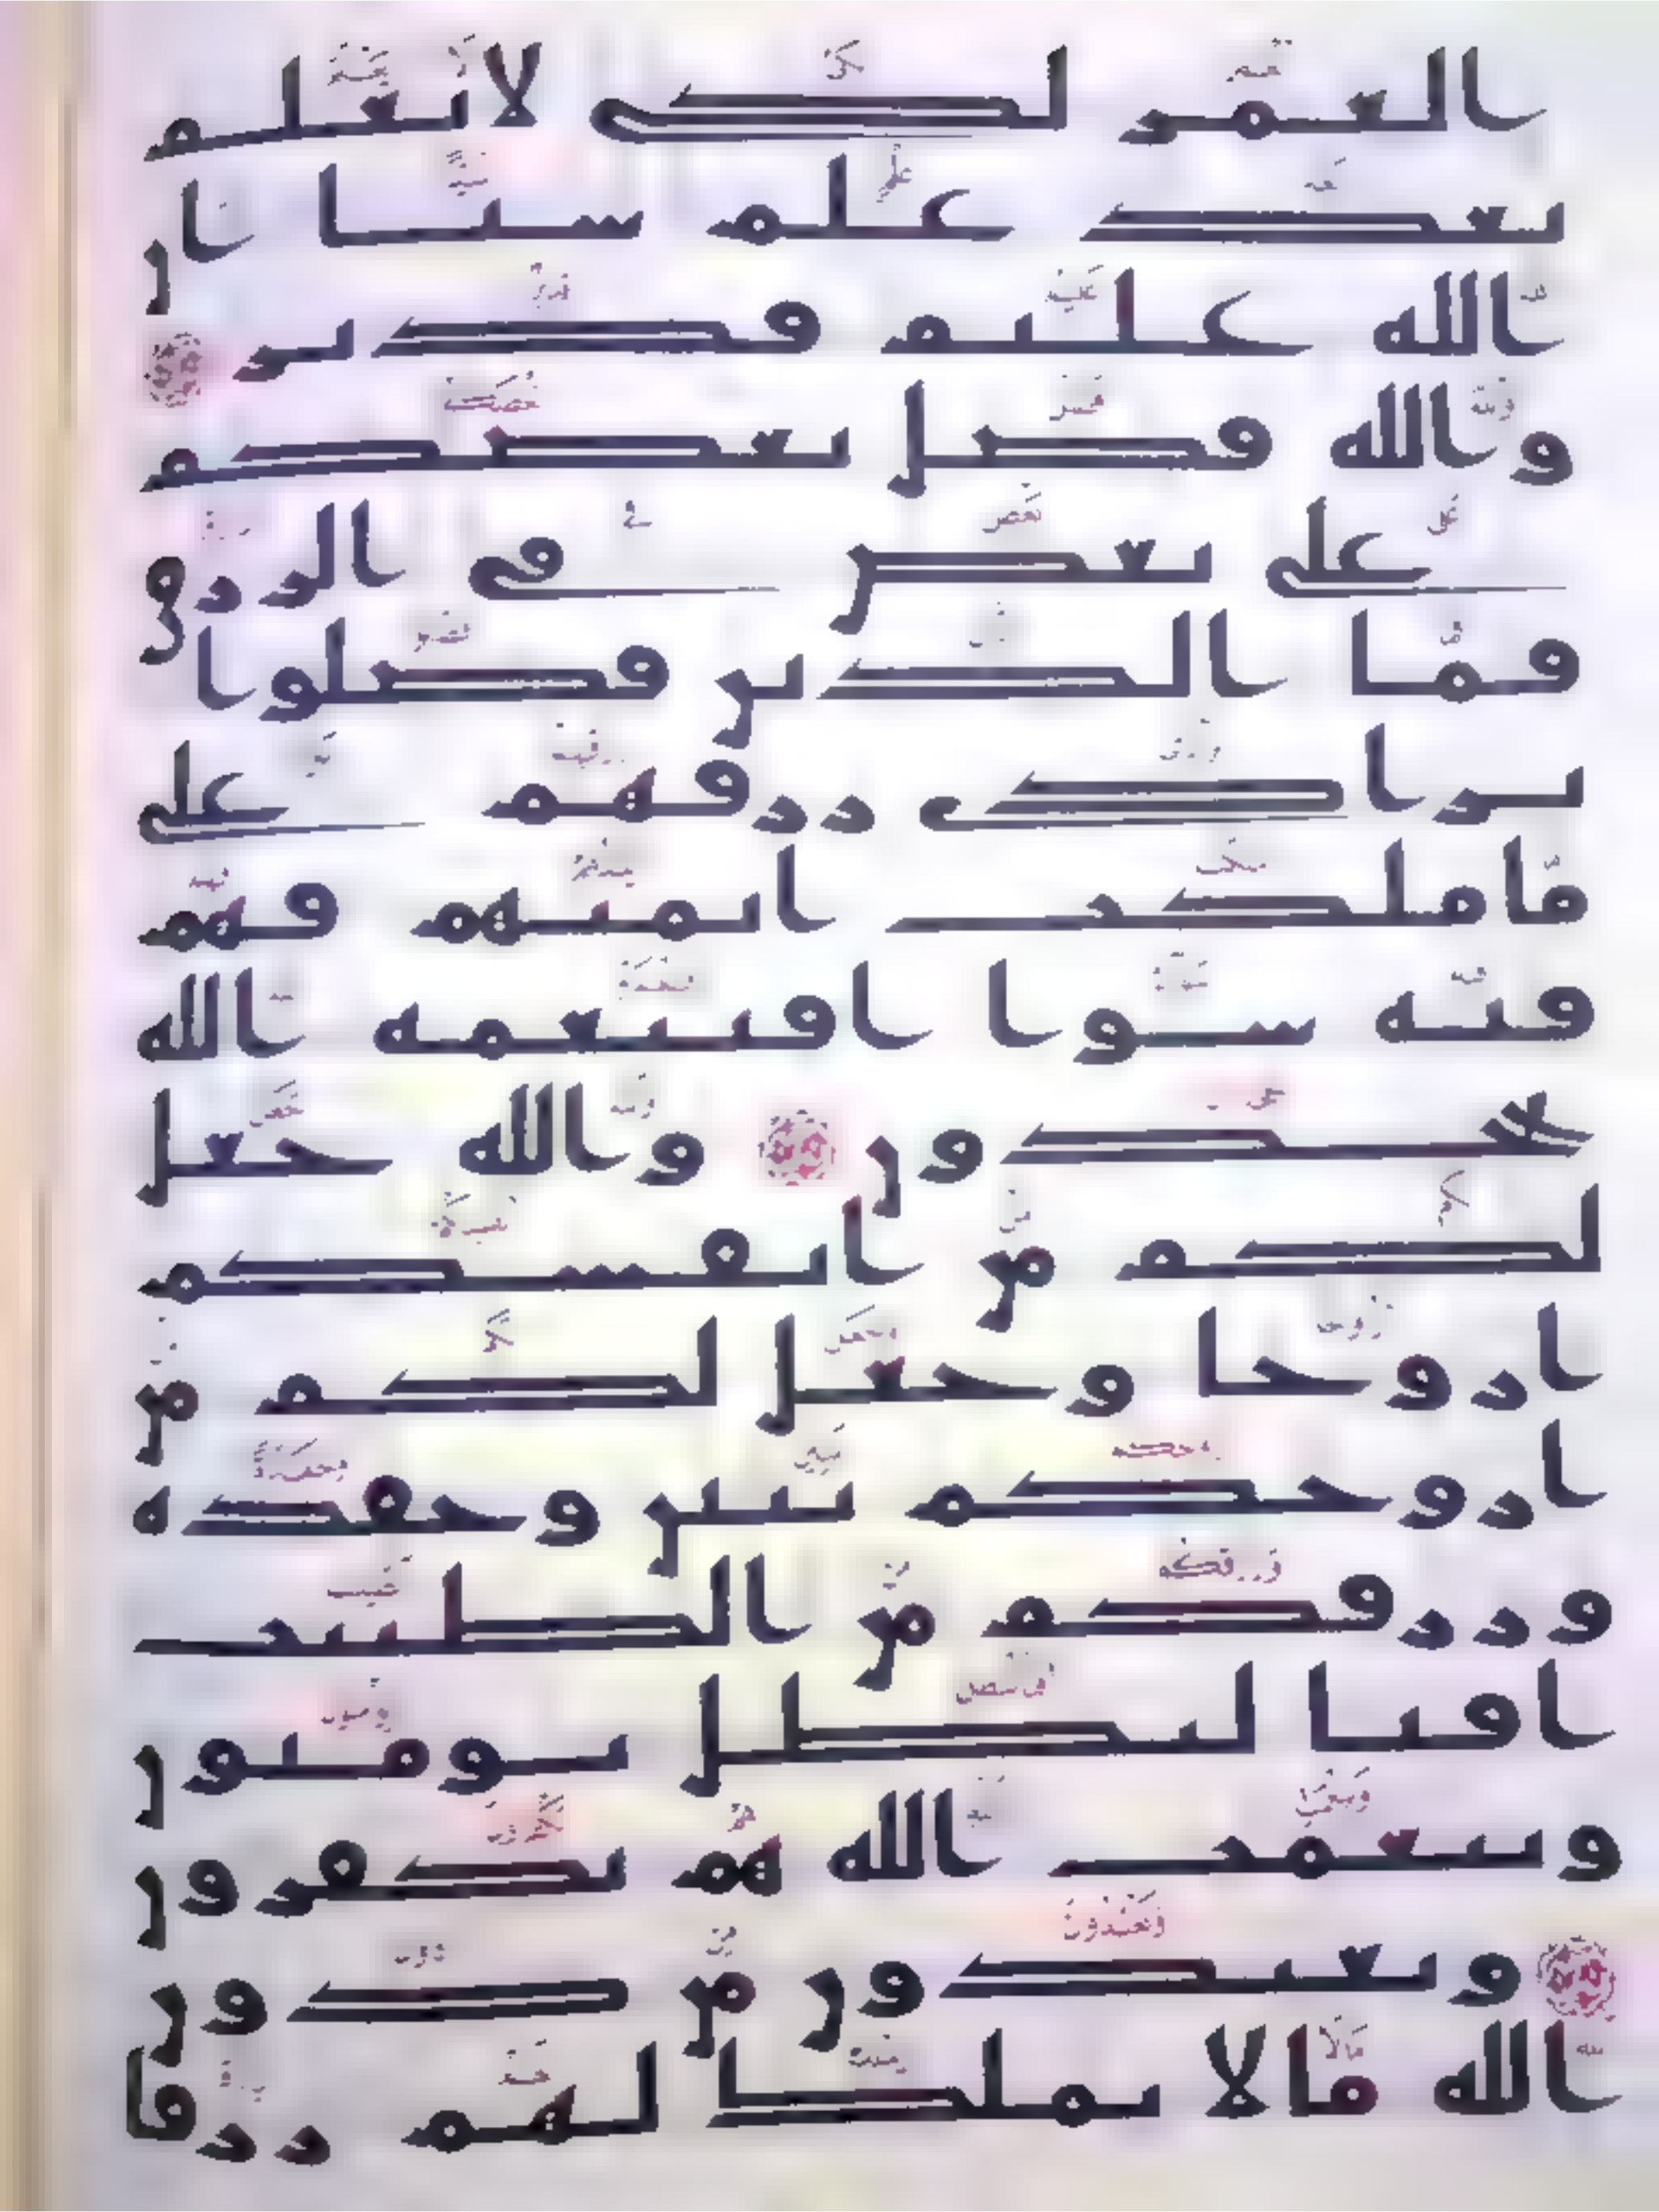 العمر لكى لا يعلم
بعد علم شيئا ان
الله عليم قدير
والله فضل بعضكم
على بعض فى الرزق
فما الذين فضلوا
برادى رزقهم على
ما ملكت ايمنهم فهم
فيه سوا افبنعمه الله
يجحدون والله جعل
لكم من انفسكم
ازوجا وجعل لكم من
ازوجكم بنين وحفده
ورزقكم من الطيبت
افبالبطل يومنون
وبنعمت الله هم يكفرون
ويعبدون من دون
الله ما لا يملك لهم رزقا